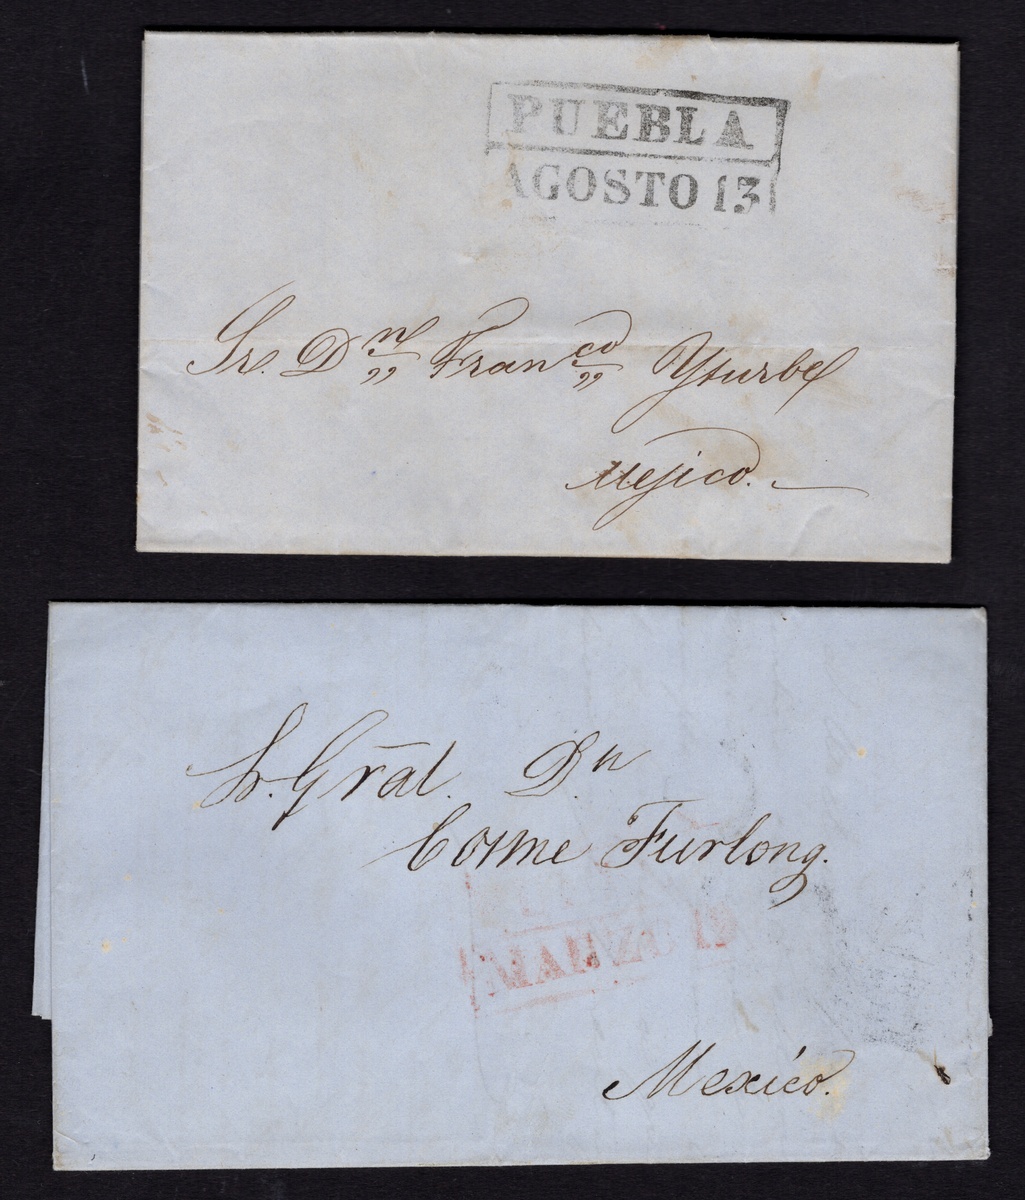 PUEBLA
AGOSTO 13
Sr. Dn Franco Yturbe
Mejico.
S. Gräl. Dn
Cosme Furlong.
MARZO
Mexico.